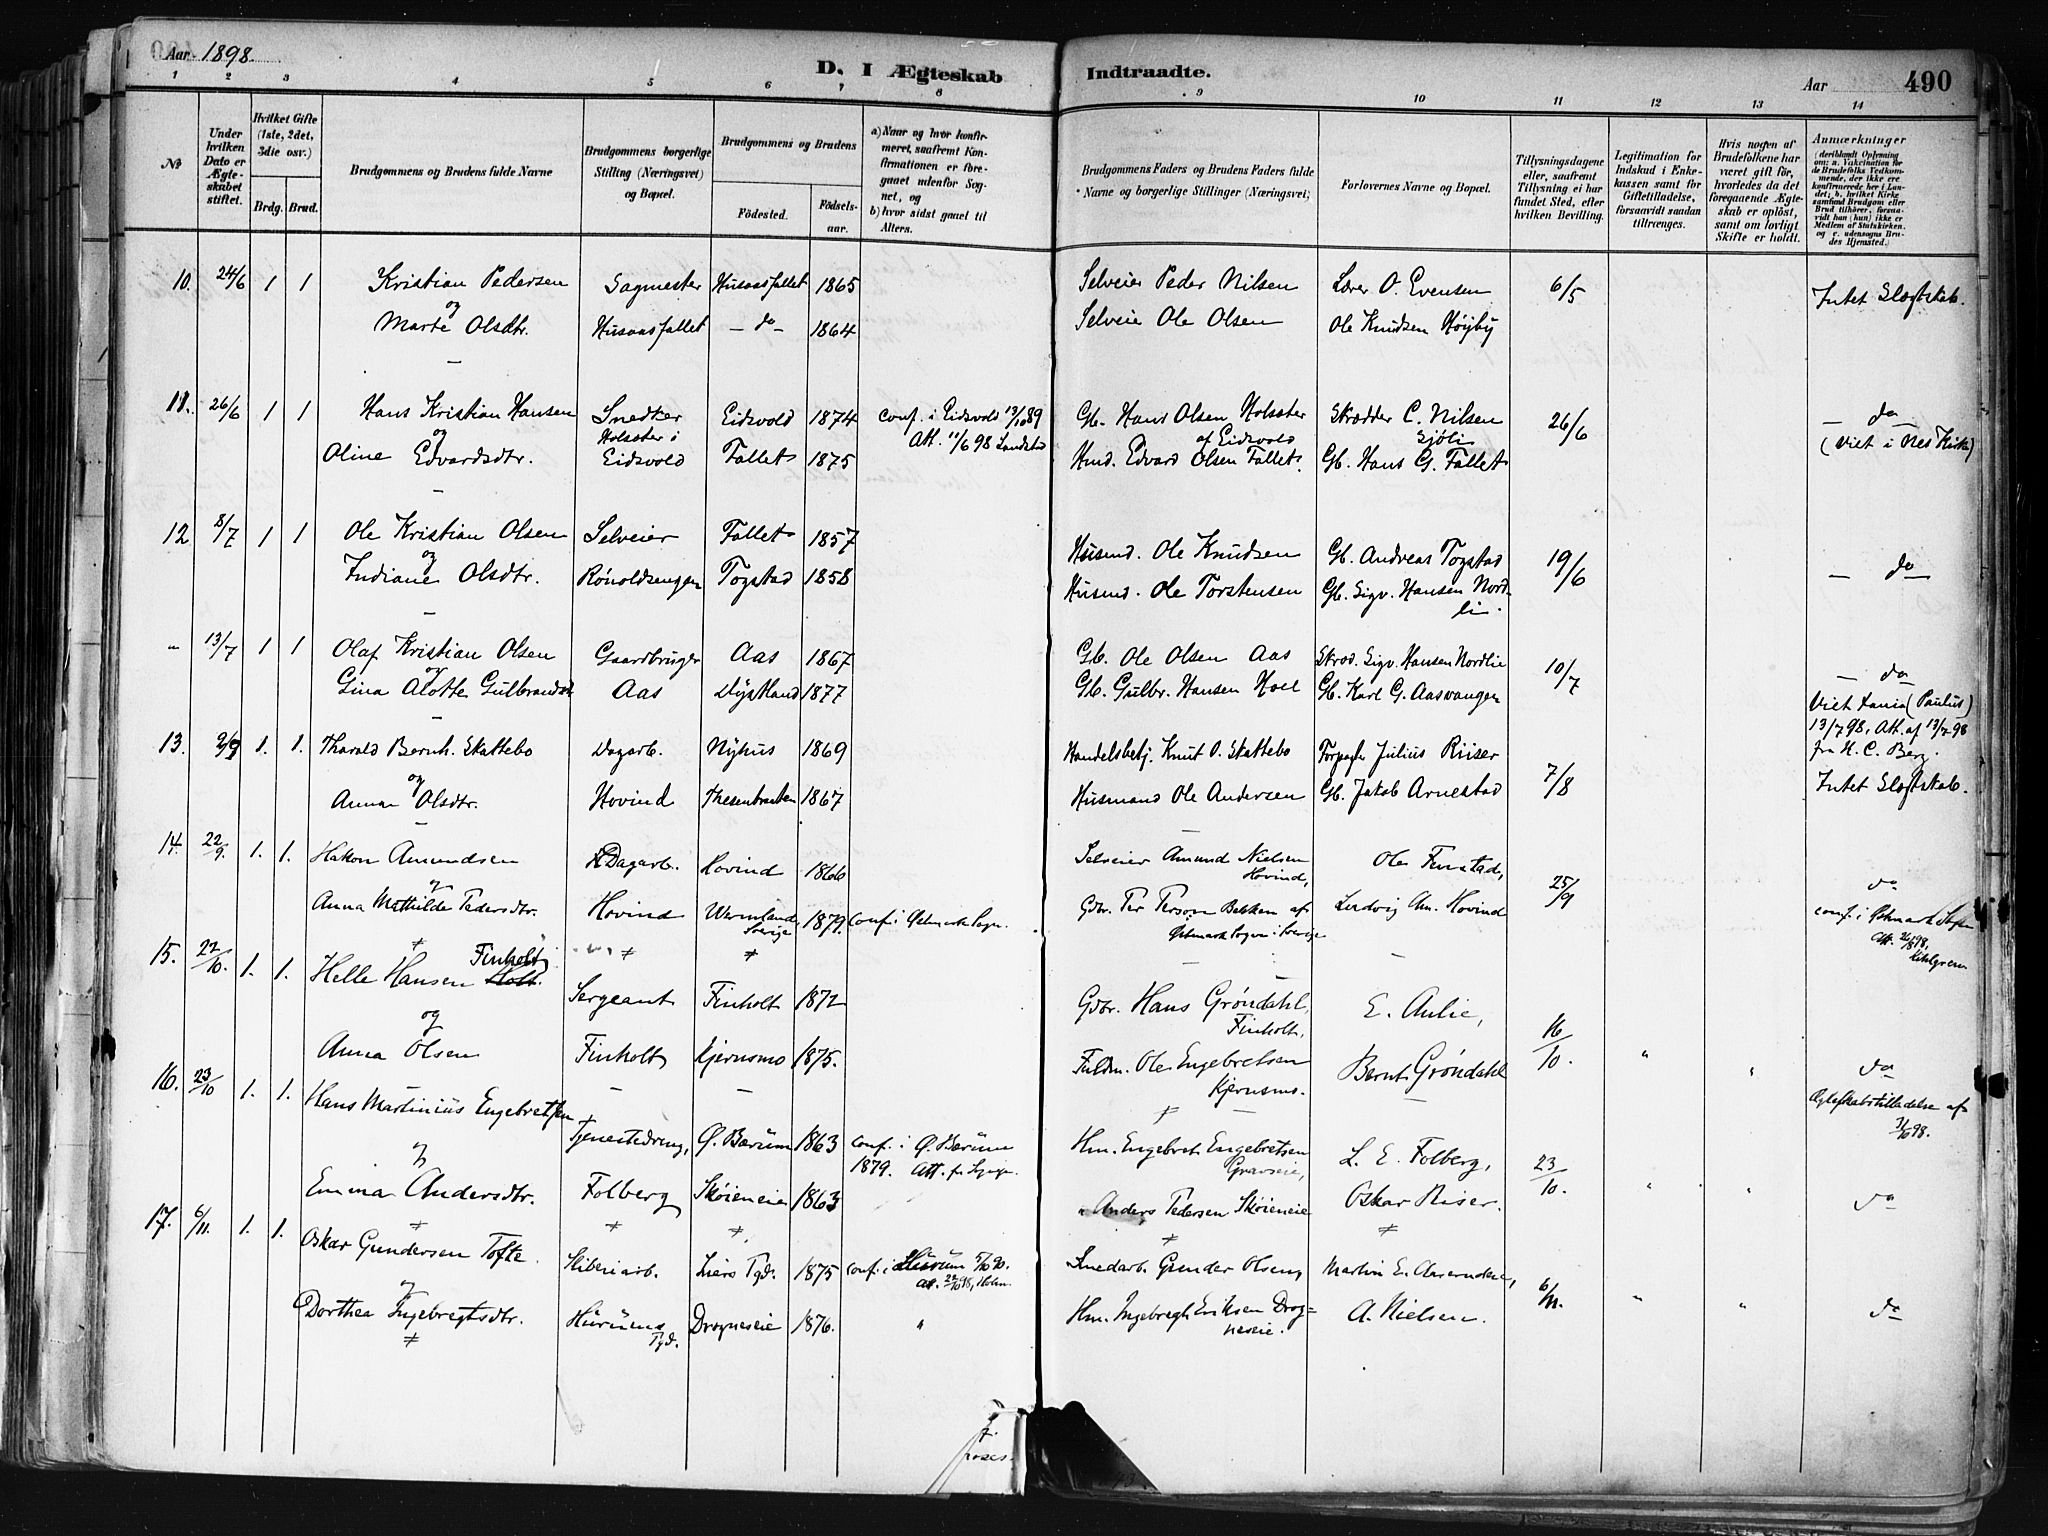 Aar 1898.
D. I Ægteskab Indtraadte.
Aar 490
1 2 3 4 5 6 7 8 9 10 11 12 13 14
No
Under hvilken Dato er Ægteskabet stiftet.
Hvilket Gifte (1ste, 2det, 3die osv.)
Brdg. Brud.
Brudgommens og Brudens fulde Navne
Brudgommens borgerlige Stilling (Næringsvei) og Bopæl.
Brudgommens og Brudens
Födested. Födselsaar.
a) Naar og hvor konfirmeret, saafremt Konfirmationen er foregaaet udenfor Sognet, og
b) hvor sidst gaaet til Alters.
Brudgommens Faders og Brudens Faders fulde Navne og borgerlige Stillinger (Næringsvei)
Forlovernes Navne og Bopæl.
Tillysningsdagene eller, saafremt Tillysning ei har fundet Sted, efter hvilken Bevilling.
Legitimation for Indskud i Enkekassen samt for Giftetilladelse, forsaavidt saadan tiltrænges.
Hvis nogen af Brudefolkene har været gift för, hvorledes da det foregaaende Ægteskab er oplöst, samt om lovligt Skifte er holdt.
Anmærkninger
(deriblandt Oplysning om: a. Vakcination for de Brudefolks Vedkommende, der ikke ere konfirmerede her i Landet; b. hvilket Kirkesamfund Brudgom eller Brud tilhörer, forsaavidt han (hun) ikke er Medlem af Statskirken. og c. udensogns Brudes Hjemsted.)
10. 24/6 1 1 Kristian Pedersen Sagmester Husaasfallet 1865 Selveier Peder Nilsen Lærer O. Evensen 6/5 Intet Slægtskab.
og
Marte Olsdtr. Husaasfallet – do – 1864 Selveie Ole Olsen Ole Knudsen Højby
11. 26/6 1 1 Hans Kristian Hansen Snedker Eidsvold 1874 conf. i Eidsvold 13/10 89 Gb. Hans Olsen Holsæter Skrædder C. Nilsen 26/6 – do –
og Holsæter i Att. 11/6 98 Landstad af Eidsvold Sjöli (Viet i Nes Kirke)
Oline Edvardsdtr. Eidsvold Fallet 1875 Hmd. Edvard Olsen Fallet. Gb. Hans G. Fallet
12 8/7 1 1 Ole Kristian Olsen Selveier Fallet 1857 Husmd. Ole Knudsen Gb. Andreas Togstad 19/6 – do –
og
Indiane Olsdtr. Rónoldsengen Togstad 1858 Husmd. Ole Torstensen Gb. Sigv. Hansen Nordli.
" 13/7 1 1 Olaf Kristian Olsen Gaardbruger Aas 1867 Gb. Ole Olsen Aas Skræd. Sigv. Hansen Nordlie 10/7 – do –
og
Gina Alotte Gulbrandsd. Aas Dystland 1877 Gb. Gulbr. Hansen Holl Gb. Karl G. Aasvangen Viet Xania (Paulus)
13/7 98, Att. af 13/7 98
fra H. C. Berg.
13. 2/9 1. 1. Tharald Bernh. Skattebo Dagarb. Nyhus 1869 Handelsbetj. Knut O. Skattebo Forpagter Julius Riiser 7/8 Intet Slægtskab.
og
Anna Olsdtr. Hovind Thesenbraaten 1867 Husmand Ole Andersen Gb. Jakob Arnestad
14. 22/9. 1. 1. Hakon Amundsen Dagarb. Hovind 1866 Selveier Amund Nielsen Hovind, Ole Funstad, 25/9 do
og
Anna Mathilde Pedersdtr. Hovind Wermland Sverige 1879. conf. i Östmark Sogn. Gdbr. Per Person Bekken af Östmark Sogn i Sverige Ludvig Am. Hovind conf. i Östmark Sogn
15. 22/10. 1. 1. Helle Hansen Finholt Sergeant Finholt 1872 Gdbr. Hans Gröndahl, Finholt, E. Aulie, 16/10. " " do
og
Anna Olsen Finholt Kjernsmo 1875. Fuldm. Ole Engebretsen Kjernsmo. Bernt Gröndahl
16. 23/10 1. 1. Hans Martinius Engebretsen Tjenestedreng, Ö. Bærum 1863 conf. i Ö. Bærum 1879. Hm. Engebret Engebretsen L. E. Folberg, 23/10. " " do Ægteskabstilladelse af
og
Emma Andersdtr. Folberg Sköieneie 1863 " Anders Pedersen Sköieneie Oskar Riser.
17. 6/11. 1. 1. Oskar Gundersen Tofte. Sliberiarb. Liers Pgd. 1875 conf. i Hurum 5/10 90. Att. 22/10 98, Holm. Snedarb. Gunder Olsen, 6/11. " " do
og
Dorthea Ingebregtsdtr. Hurums Pgd. Drogneseie 1876. " Hm. Ingebregt Eriksen Drogneseie. A. Nielsen.